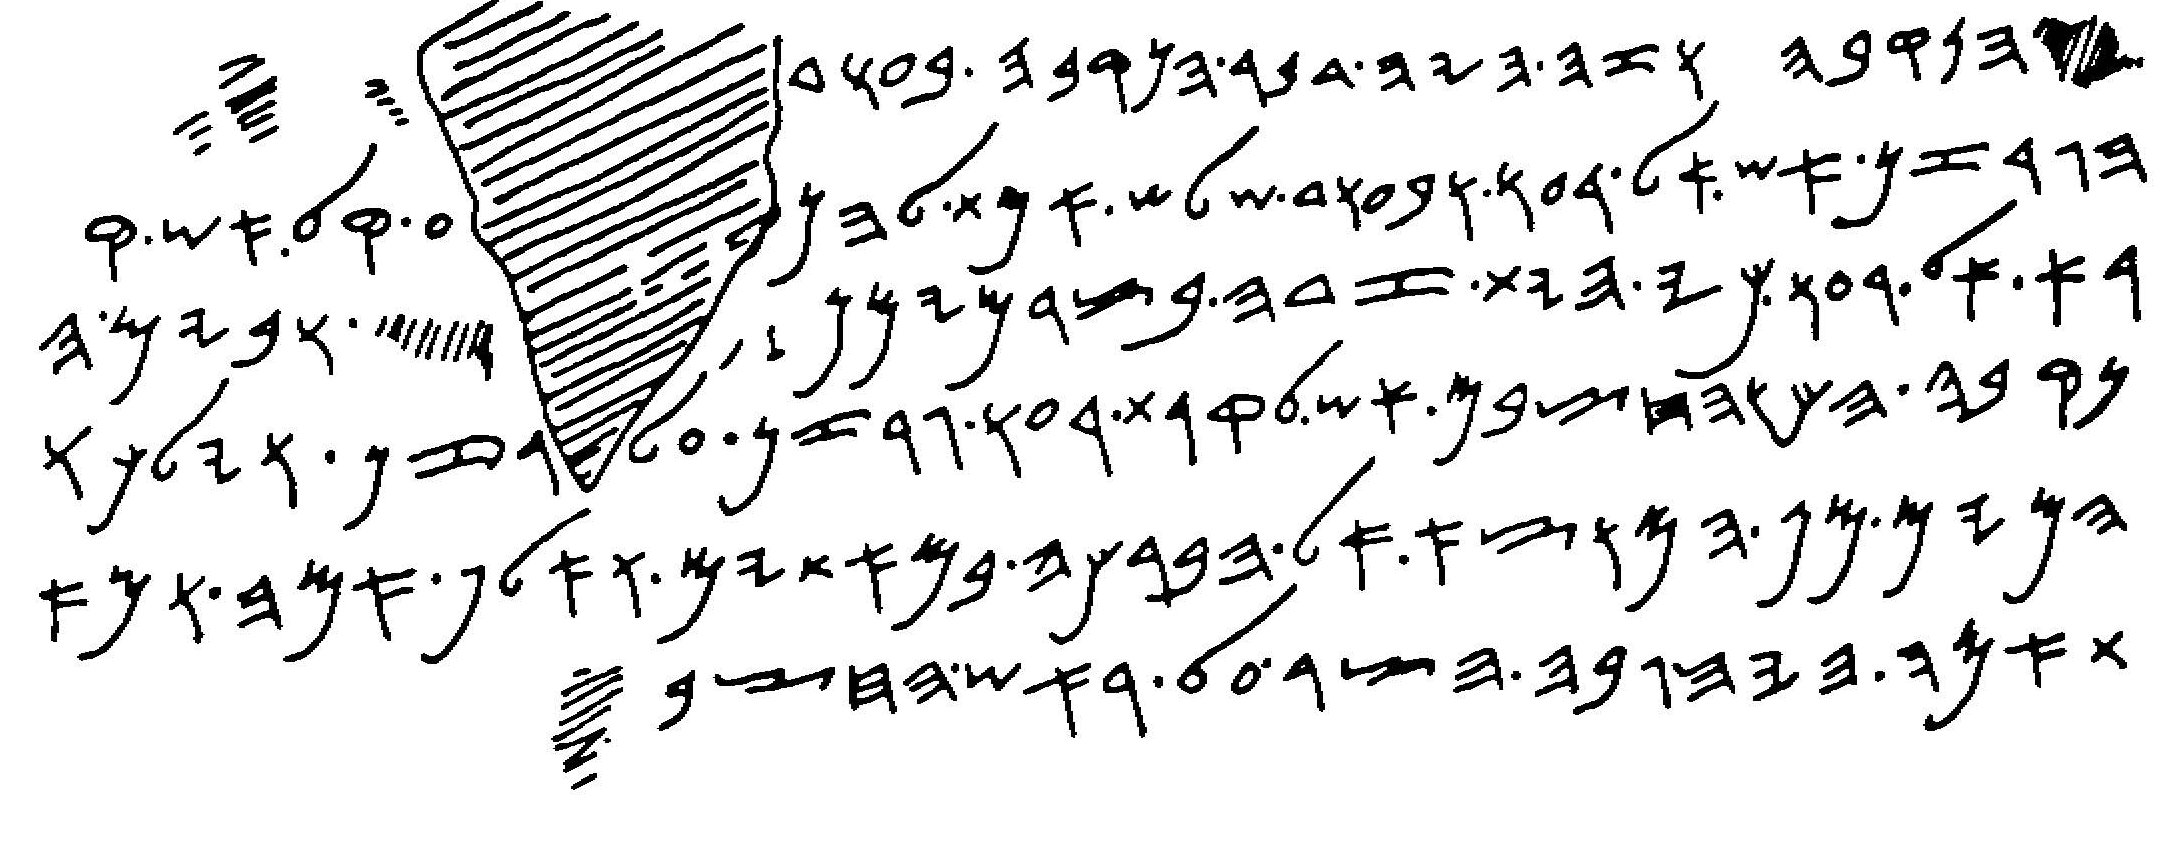 𐤄𐤍𐤒𐤁𐤄 𐤅𐤆𐤄.𐤄𐤉𐤄.𐤃𐤁𐤓.𐤄𐤍𐤒𐤁𐤄.𐤁𐤏𐤅𐤃
𐤄𐤂𐤓𐤆𐤍.𐤀𐤔.𐤀𐤋.𐤓𐤏𐤅.𐤅𐤁𐤏𐤅𐤃.𐤔𐤋𐤔.𐤀𐤌𐤕.𐤋𐤄𐤍 𐤏.𐤒𐤋.𐤀𐤔.𐤒
𐤓𐤀.𐤀𐤋.𐤓𐤏𐤅.𐤊𐤉.𐤄𐤉𐤕.𐤆𐤃𐤄.𐤁𐤑𐤓.𐤌𐤉𐤌𐤍 .𐤅𐤁𐤉𐤌.𐤄
𐤍𐤒𐤁𐤄.𐤄𐤊𐤅.𐤄𐤇𐤑𐤁𐤌.𐤀𐤔.𐤋𐤒𐤓𐤕.𐤓𐤏𐤅.𐤂𐤓𐤆𐤍.𐤏𐤋 𐤓𐤆𐤍.𐤅𐤉𐤋𐤊𐤅
𐤄𐤌𐤉𐤌.𐤌𐤍.𐤄𐤌𐤅𐤑𐤀.𐤀𐤋.𐤄𐤁𐤓𐤊𐤄.𐤁𐤌𐤀𐤕𐤉𐤌.𐤅𐤀𐤋𐤐.𐤀𐤌𐤄.𐤅𐤌𐤀
𐤕𐤀𐤌𐤄.𐤄𐤉𐤄𐤂𐤁𐤄.𐤄𐤑𐤓.𐤏𐤋.𐤓𐤀𐤔.𐤄𐤇𐤑𐤁